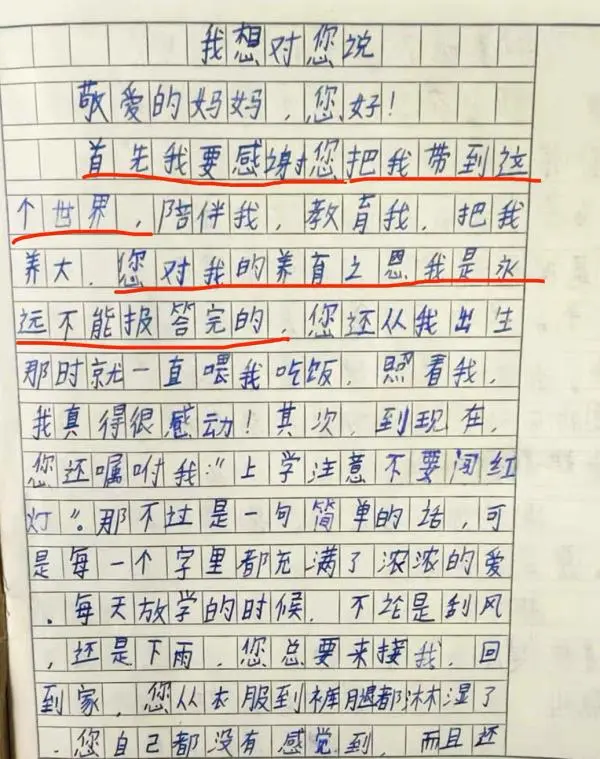 我想对您说
敬爱的妈妈，您好！
首先我要感谢您把我带到这
个世界，陪伴我，教育我，把我
养大，您对我的养育之恩我是永
远不能报答完的，您还从我出生
那时就一直喂我吃饭，照看我，
我真得很感动！其次，到现在，
您还嘱咐我：“上学注意不要闯红
灯”。那不过是一句简单的话，可
是每一个字里都充满了浓浓的爱
。每天放学的时候，不论是刮风
，还是下雨，您总要来接我，回
到家，您从衣服到裤腿都淋湿了
，您自己都没有感觉到，而且还